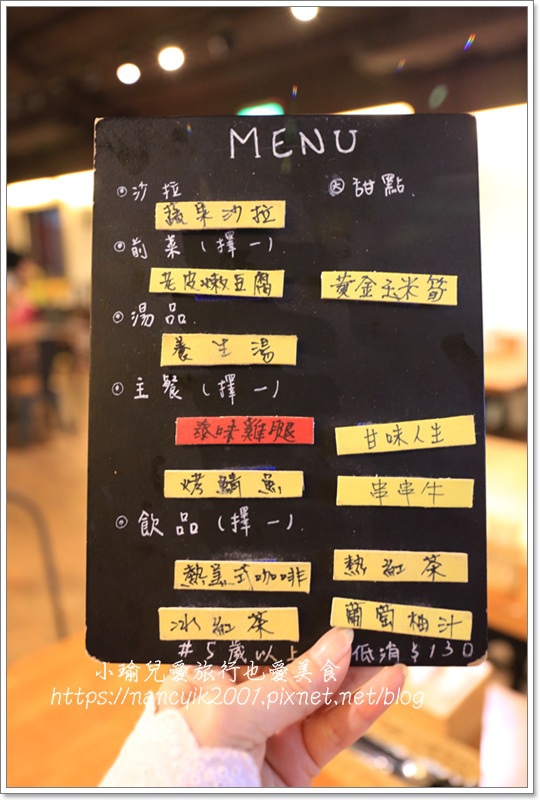 MENU
⊙沙拉 ⊗甜點.
蔬果沙拉
⊙前菜(擇一)
老皮嫩豆腐 黃金玉米筍
⊙湯品.
養生湯
⊙主餐(擇一)
泰味雞腿 甘味人生
烤鯖魚 串串牛
⊙飲品(擇一).
熱美式咖啡 熱紅茶
冰紅茶 葡萄柚汁
#5歲以上 低消$130
小瑜兒愛旅行也愛美食
https://nancylk2001.pixnet.net/blog